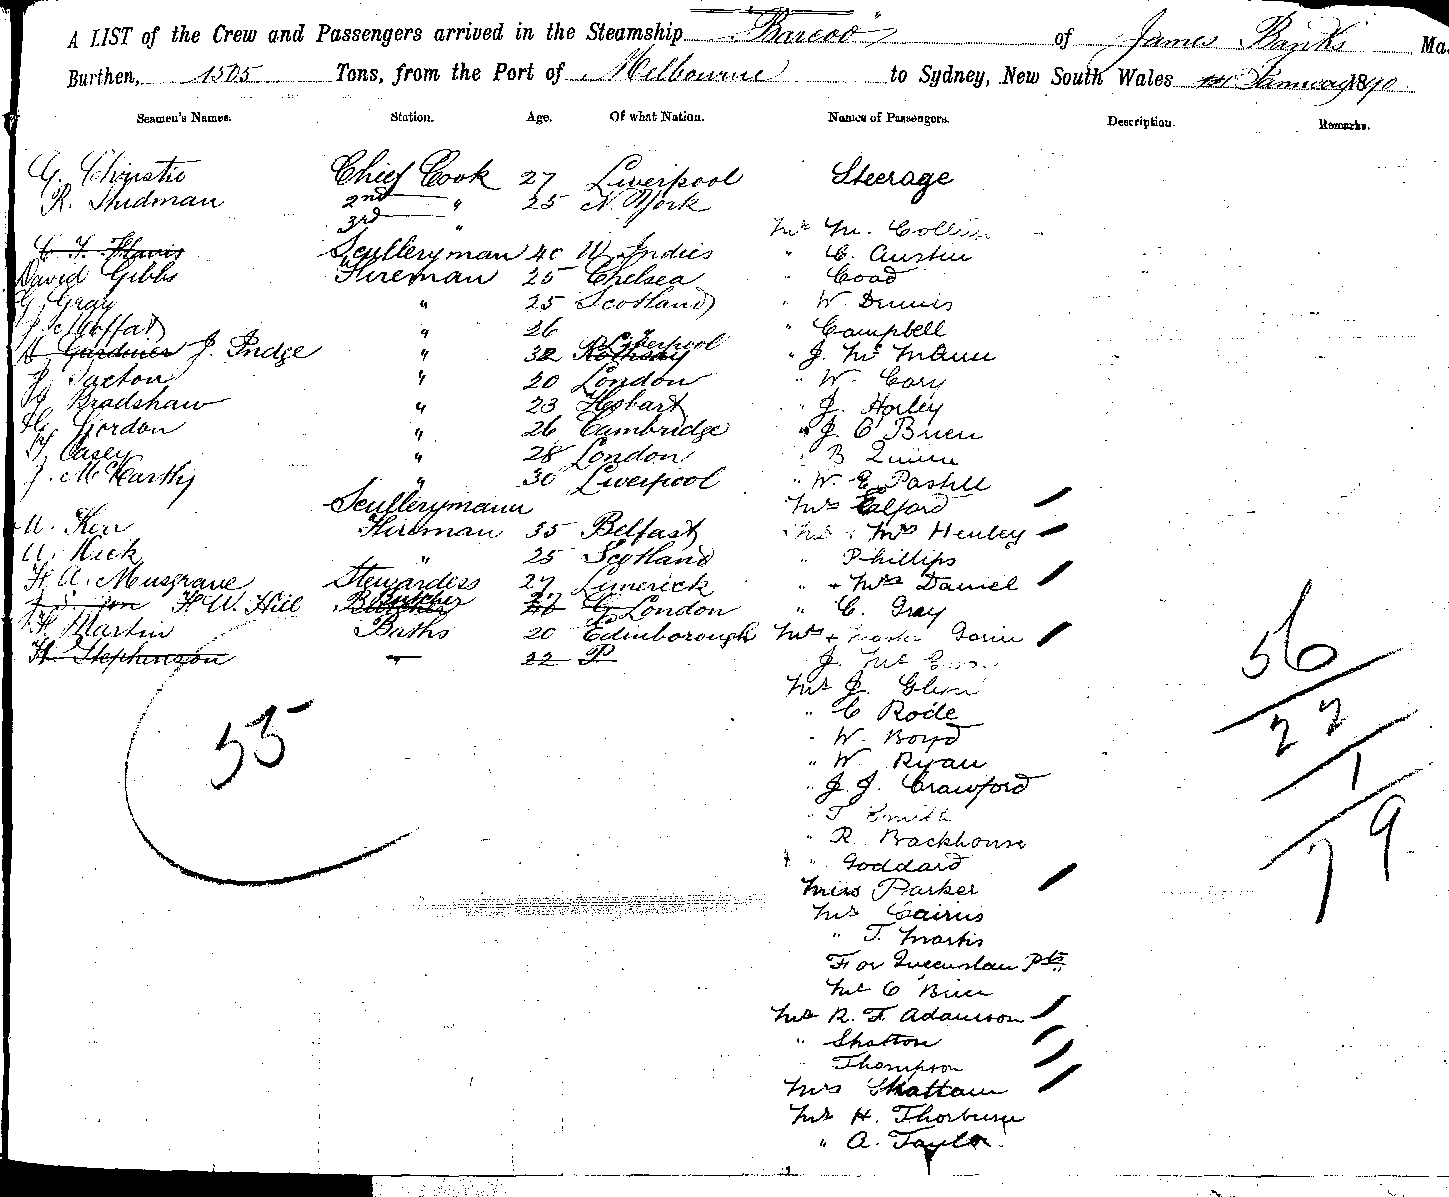 A LIST of the Crew and Passengers arrived in the Steamship "Barcoo" of James Banks Ma.
Burthen, 1505 Tons, from the Port of Melbourne to Sydney, New South Wales January 1890
Seamen's Names. Station. Age. Of what Nation. Names of Passengers. Description. Remarks.
G. Christie Chief Cook 27 Liverpool Steerage
R. Studman 2nd " 25 N. York
3rd "
Mr M. Collins
Sculleryman 40 W. Indies " C. Austin
David Gibbs Fireman 25 Chelsea " Coad
G. Gray " 25 Scotland " W. Dennis
J. Moffat " 26 " " Campbell
Gardiner J. Pudge " 32 Liverpool Rothsay " J. McMann
J. Paxton " 20 London " W. Cary
J. Bradshaw " 23 Hobart " J. Horley
H. Gordon " 26 Cambridge " J. O Brien
T. Casey " 28 London " B Quinn
J. McCarthy " 30 Liverpool " W. E. Paskell
Scullerymann Mrs Telford
A. Kerr Fireman 35 Belfast Mr + Mrs Henley
A. Hick " 25 Scotland " Phillips
H. A. Musgrave Stewardess 27 Limerick " + Mrs Daniel
H W. Hill Butcher London " C. Gray
H. Martin Baths 20 Edinborough Mrs + Gavin
H. Stephenson " 22 J. Mc
Mr J. Glenn
" C Rode
" W. Boyd
" W. Ryan
" J. J. Crawford
" T Smith
" R. Backhouse
" Goddard
Miss Parker
Mr Cairns
" T. Martin
For Queenslan Pts
Mr O Brien
Mr R. F. Adamson
" Shatton
Thompson
Mrs Shattan
Mr H. Thorburn
" A. Taylor
55
56
22
1
79